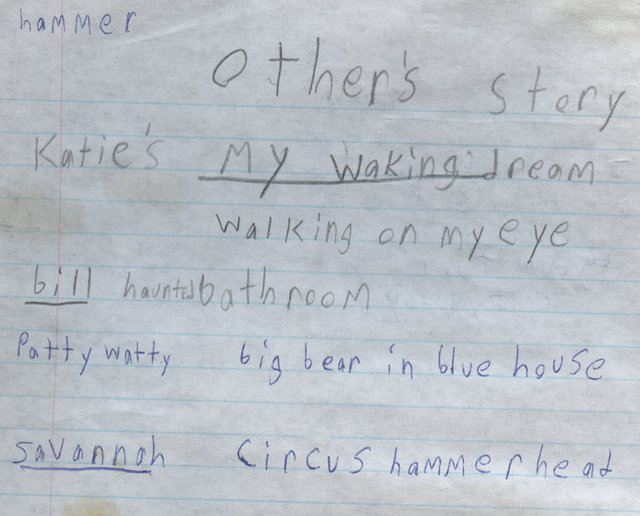 hammer
Other's story
Katie's My waking dream
walking on my eye
bill haunted bathroom
Patty watty big bear in blue house
savannah Circus hammerhead